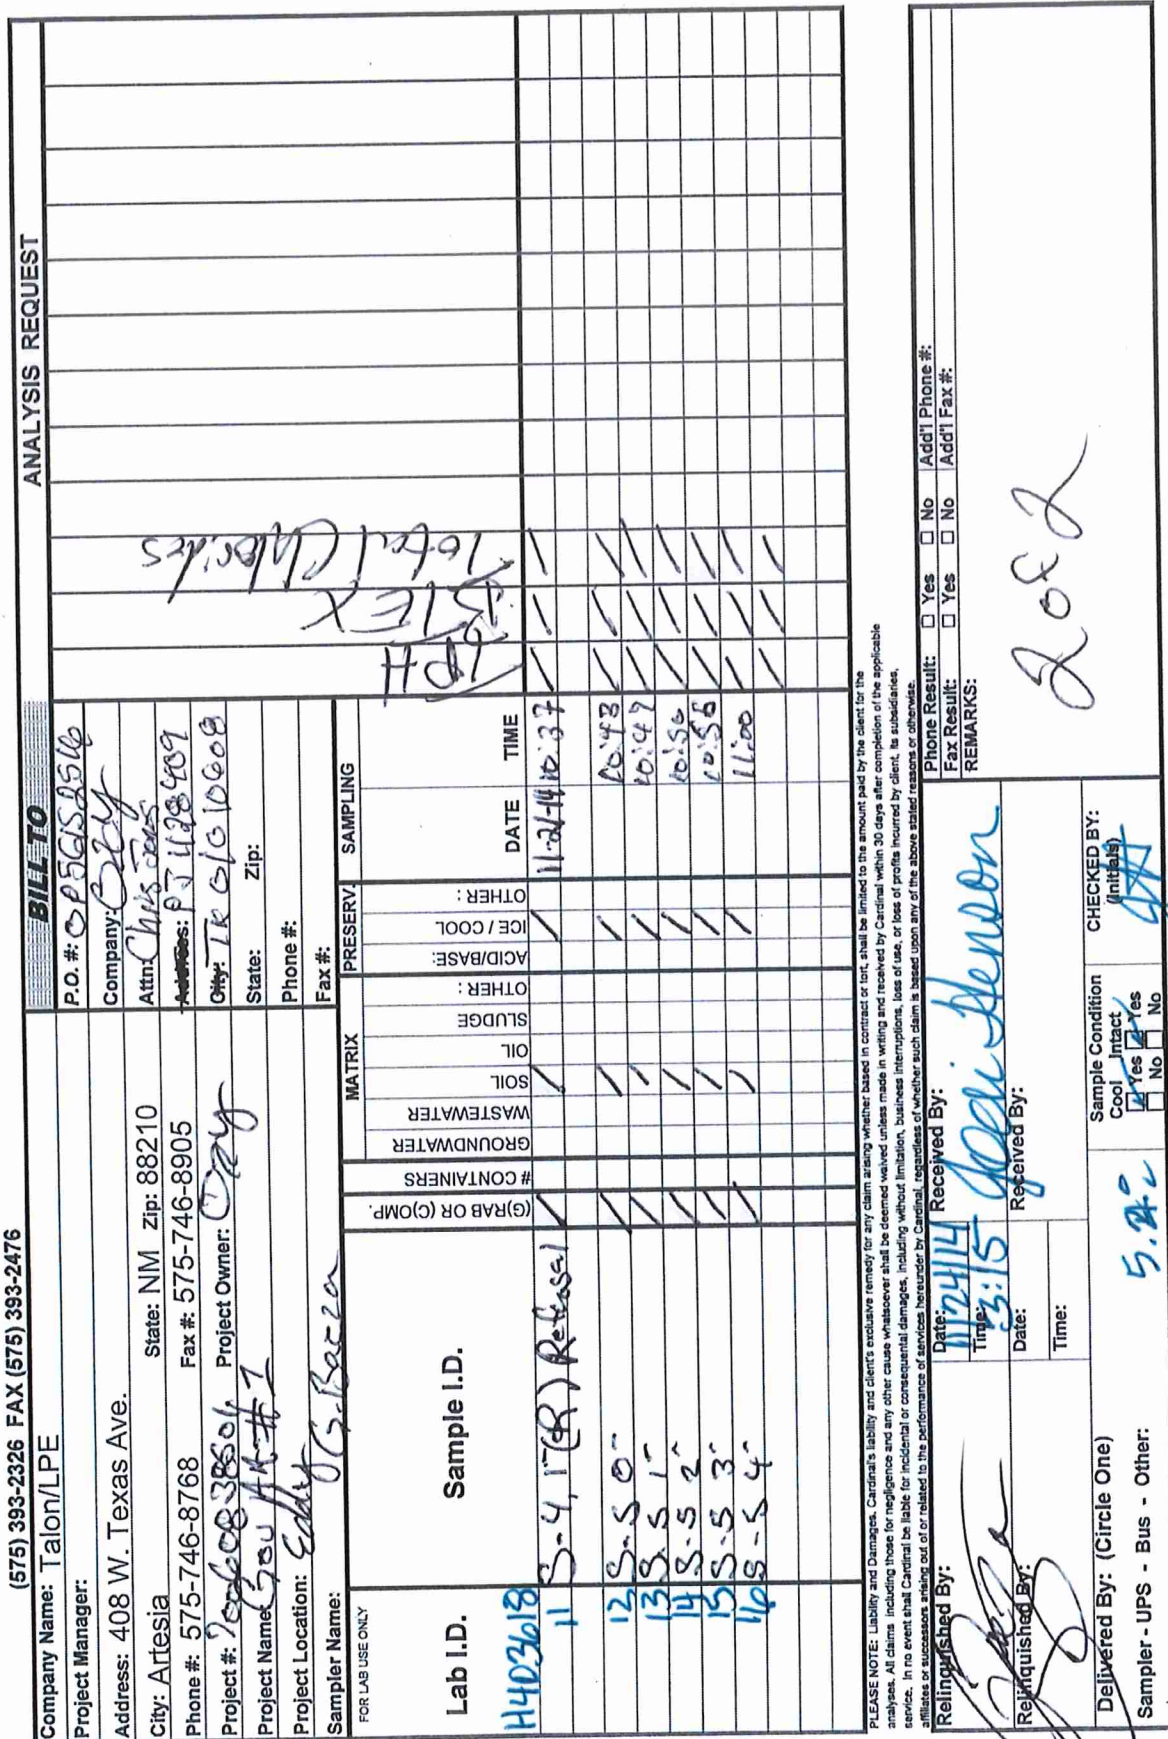 (575) 393-2326 FAX (575) 393-2476
Company Name: Talon/LPE
Project Manager:
Address: 408 W. Texas Ave.
City: Artesia State: NM Zip: 88210
Phone #: 575-746-8768 Fax #: 575-746-8905
Project #: Project Owner: Oxy
Project Name:
Project Location: Eddy
Sampler Name: G. Baeza
BILL TO
P.O. #:
Company: Oxy
Attn: Chris Jones
Address:
City:
State: Zip:
Phone #:
Fax #:
ANALYSIS REQUEST
TPH
BTEX
Total Chlorides
FOR LAB USE ONLY
Lab I.D.
Sample I.D.
(G)RAB OR (C)OMP.
# CONTAINERS
MATRIX
GROUNDWATER
WASTEWATER
SOIL
OIL
SLUDGE
OTHER :
PRESERV.
ACID/BASE:
ICE / COOL
OTHER :
SAMPLING
DATE TIME
H403618
11 S-4, 1-(R) Refusal / / / 11-21-14 10:37 / / /
12 S-5 0- / / / 10:43 / / /
13 S-5 1- / / / 10:47 / / /
14 S-5 2- / / / 10:50 / / /
15 S-5 3- / / / 10:56 / / /
16 S-5 4- / / / 11:00 / / /
PLEASE NOTE: Liability and Damages. Cardinal's liability and client's exclusive remedy for any claim arising whether based in contract or tort, shall be limited to the amount paid by the client for the
analyses. All claims including those for negligence and any other cause whatsoever shall be deemed waived unless made in writing and received by Cardinal within 30 days after completion of the applicable
service. In no event shall Cardinal be liable for incidental or consequental damages, including without limitation, business interruptions, loss of use, or loss of profits incurred by client, its subsidiaries,
affiliates or successors arising out of or related to the performance of services hereunder by Cardinal, regardless of whether such claim is based upon any of the above stated reasons or otherwise.
Relinquished By:
Date: 11/24/14
Time: 3:15
Received By:
Jodi Henson
Relinquished By:
Date:
Time:
Received By:
Delivered By: (Circle One)
Sampler - UPS - Bus - Other:
Sample Condition
Cool Intact
Yes Yes
No No
CHECKED BY:
(Initials)
Phone Result: Yes No Add'l Phone #:
Fax Result: Yes No Add'l Fax #:
REMARKS:
2 of 2